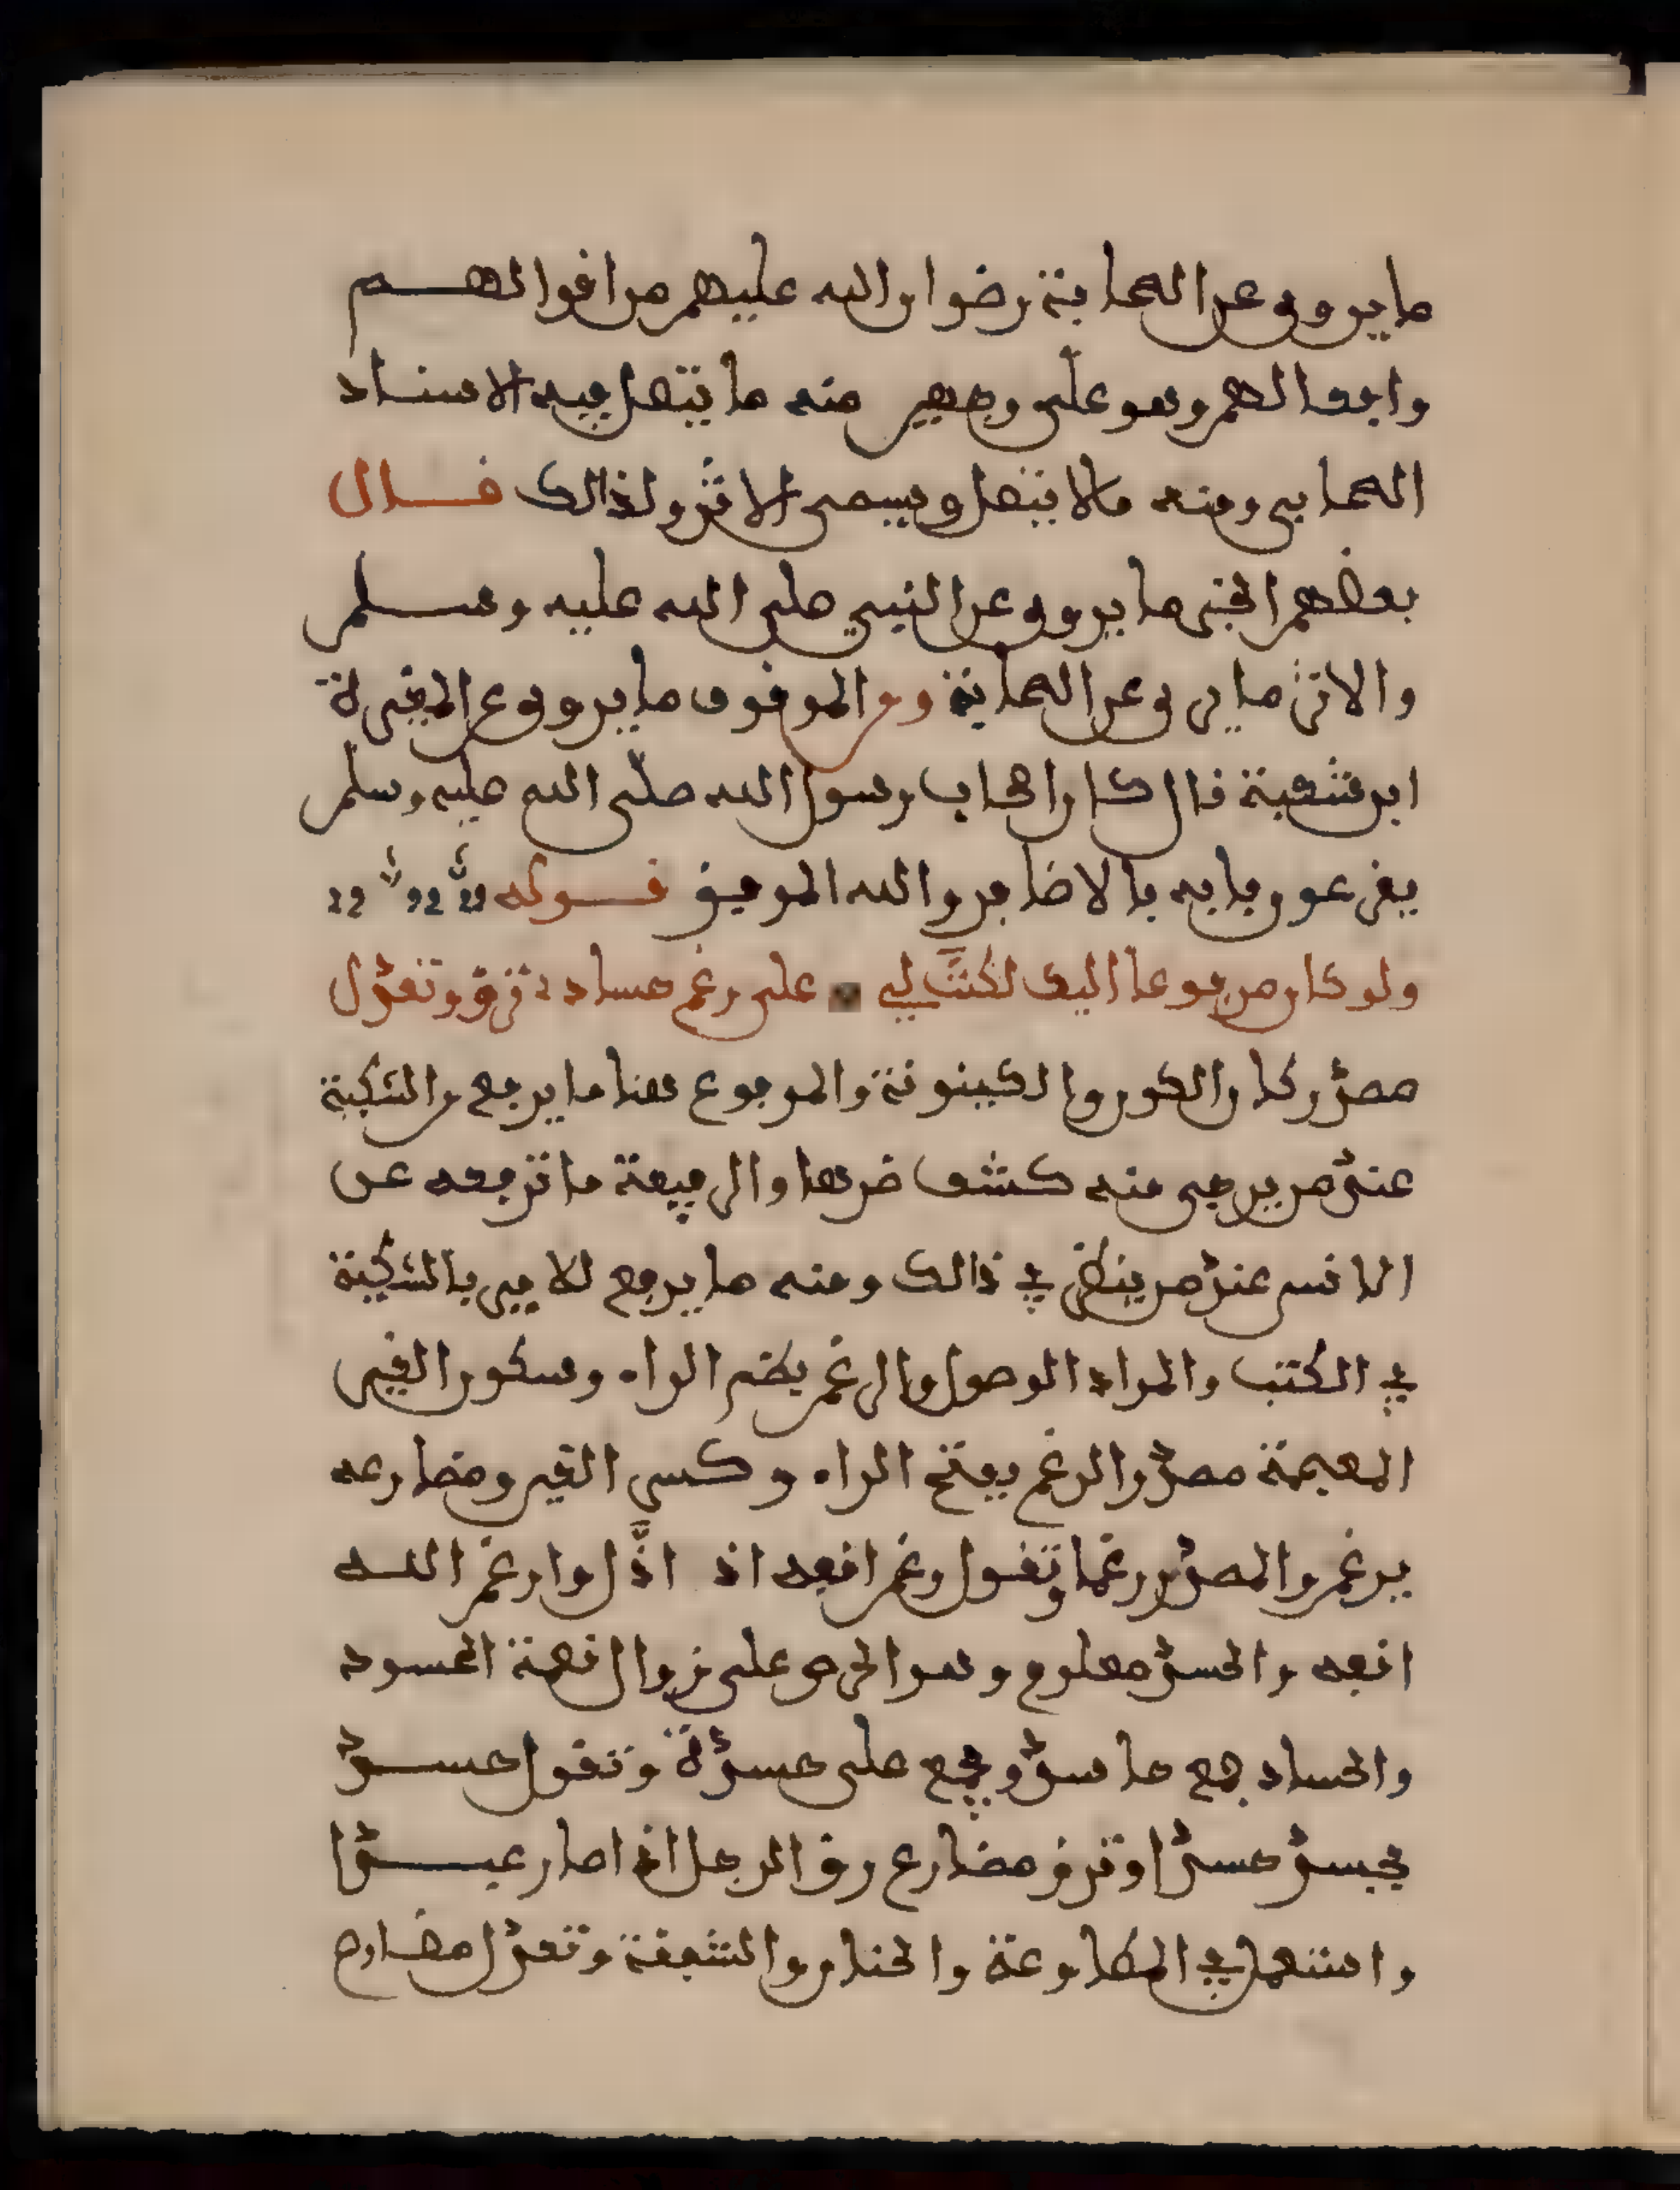 ما يروى عن الصحابة رضوان الله عليهم من اقوالهم
وافعالهم وهو على وجهين منه ما يتصل فيه الاسناد
الصحابي ومنه مالا يتصل ويسمى الاثر ولذالك قال
بعضهم الخبر ما يروى عن النبيء صلى الله عليه وسلم
والاثر ما يروى عن الصحابة ومن الموقوف ما يروى عن المغيرة
ابن شعبة قال كان اصحاب رسول الله صلى الله عليه وسلم
يقرعون بابه بالاظافر والله الموفق قوله
ولو كان مرفوعا اليك لكنت لي على رغم حسادي ترق وتعدل
مصدر كان الكون والكينونة والمرفوع هنا ما يرفع من الشكية
عند من يرجى منه كشف ضرها والرفيعة ما ترفعه عن
الانسى عند من ينظر في ذالك ومنه ما يرفع للامير بالشكية
في الكتب والمراد الوصول والرغم بضم الراء وسكون الغين
المعجمة مصدر الرغم بفتح الراء وكسر الغين ومضارعه
يرغم والمصدر رغما وتقول رغم انفه اذ اذل وارغم الله
انفه والحسد معلوم وهو الحرص على زوال نعمة المحسود
والحساد جمع حاسد ويجمع على حسدة وتقول حسد
يحسد حسدا وترق مضارع رق الرجل اذا صار عبدا
واستعمل في المطاوعة والحنان والشفقة وتعدل مضارع